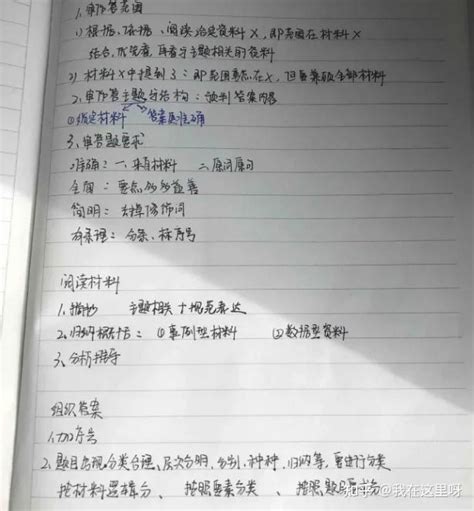 1、审作答范围
1) 根据、依据、阅读给定资料X，即范围在材料X
结合、优先看，再看与主题相关的资料
2) 材料X中提到了：即范围重点在X，但要兼顾全部材料
2、审作答主题与结构：预判答案内容
①锁定材料 答案更准确
3、审答题要求
准确：一、来自材料 二、原词原句
全面：要点多多益善
简明：去掉修饰词
有条理：分条、标序号
阅读材料
1、摘抄 主题相关+规范表达
2、归纳概括：①事例型材料 ②数据型资料
3、分析推导
组织答案
1、加序号
2、题目出现分类合理、层次分明、分别、种种、归纳等，要进行分类
按材料逻辑分、按照要素分类、按照题目要求分
知乎 @我在这里呀